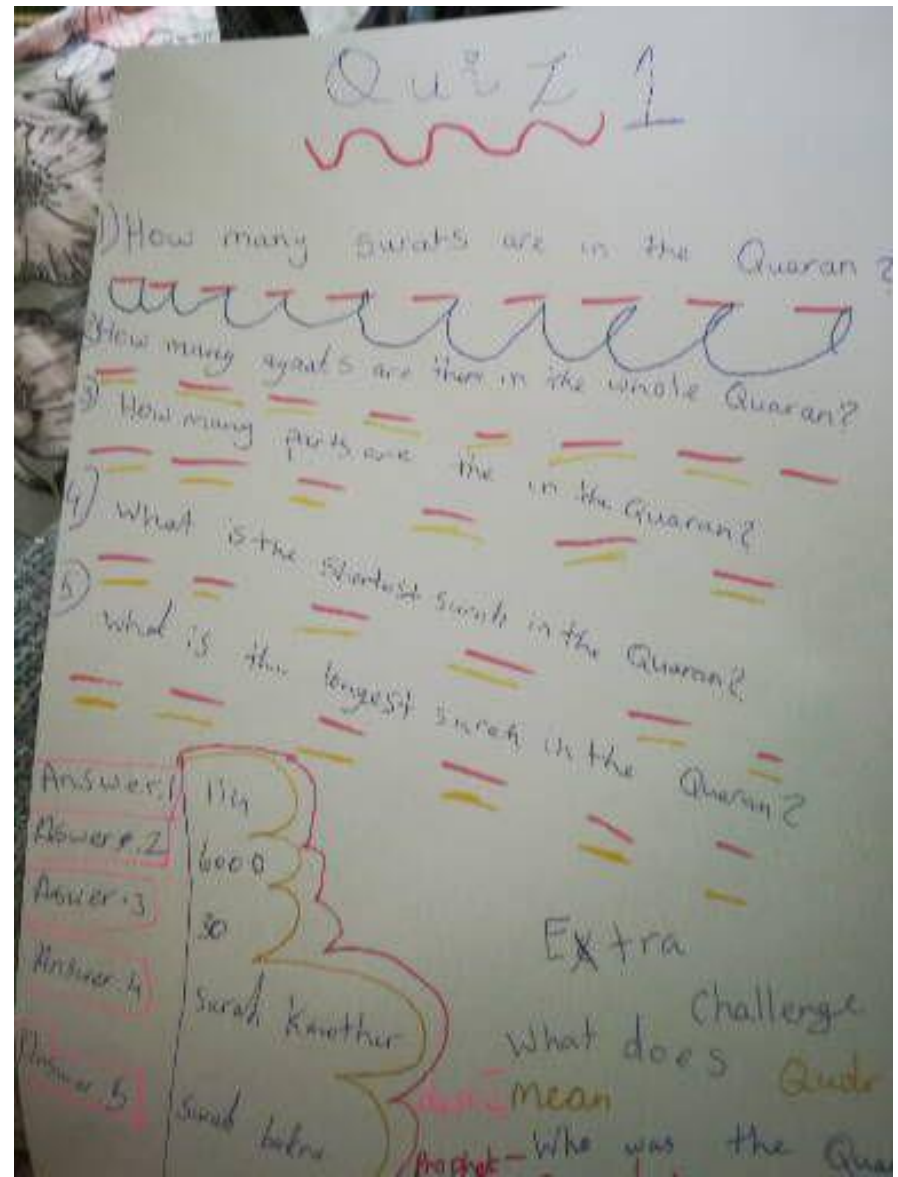 Quiz 1
1) How many surats are in the Quaran?
2) How many ayaats are there in the whole Quaran?
3) How many parts are the in the Quaran?
4) What is the shortest surah in the Quaran?
5) What is the longest surah in the Quaran?
Answer.1 114
Answer.2 6000
Answer.3 30
Answer.4 Surah Kawthur
Answer.5 Surah bakra
Extra
Challenge
What does Qudr
mean
Prophet - Who was the Qua